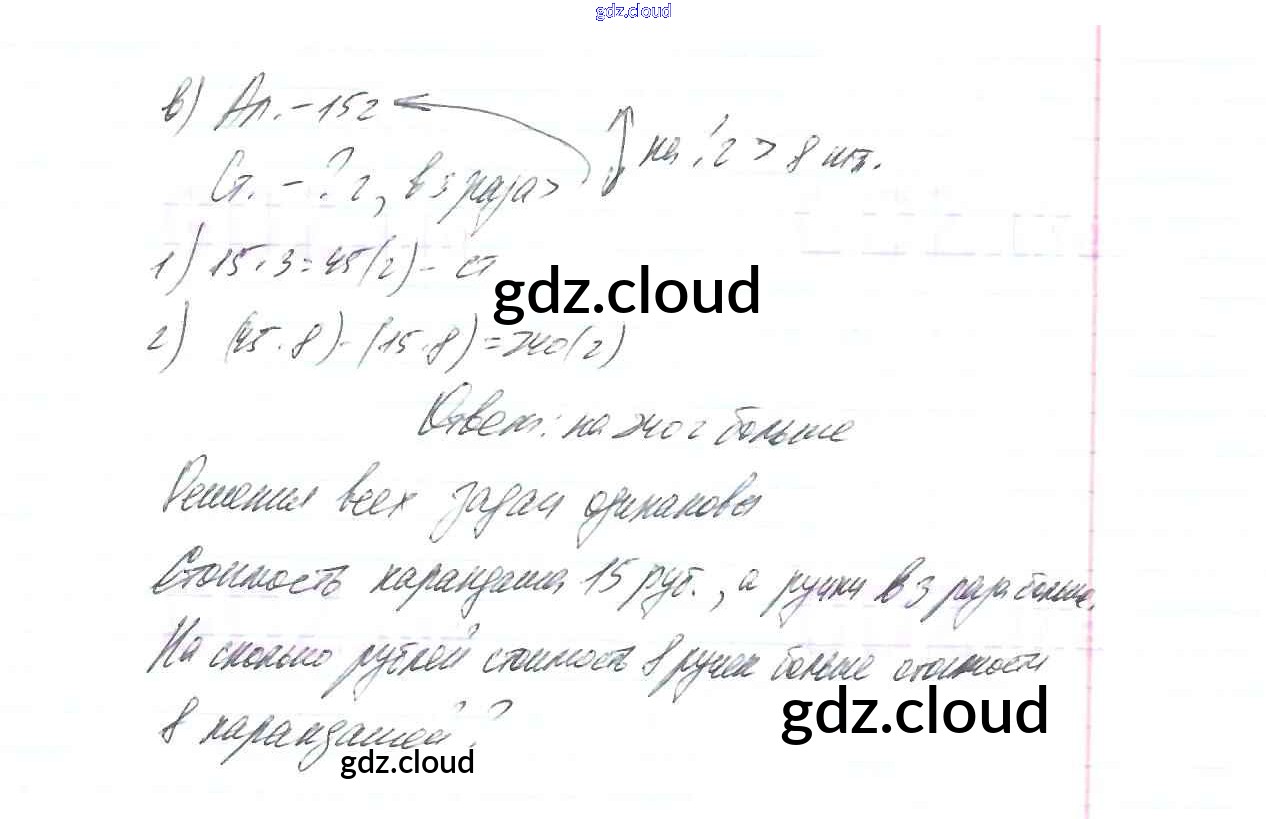 gdz.cloud
в) Ал. - 15 г
на ? г > 8 шт.
Ст. - ? г, в 3 раза >
1) 15 · 3 = 45 (г) - ст
gdz.cloud
2) (45 · 8) - (15 · 8) = 240 (г)
Ответ: на 240 г больше
Решения всех задач одинаковы
Стоимость карандаша 15 руб., а ручки в 3 раза больше.
На сколько рублей стоимость 8 ручек больше стоимости
8 карандашей?
gdz.cloud
gdz.cloud